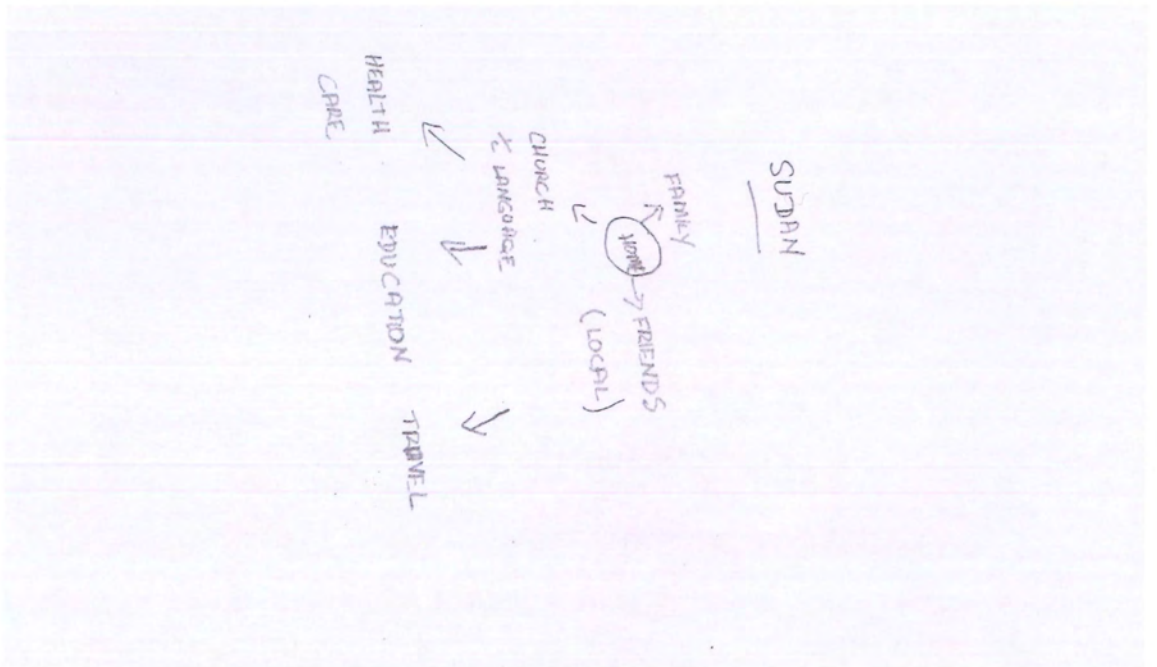 SUDAN
FAMILY
HOME FRIENDS
(LOCAL)
CHURCH
LANGUAGE
HEALTH EDUCATION TRAVEL
CARE